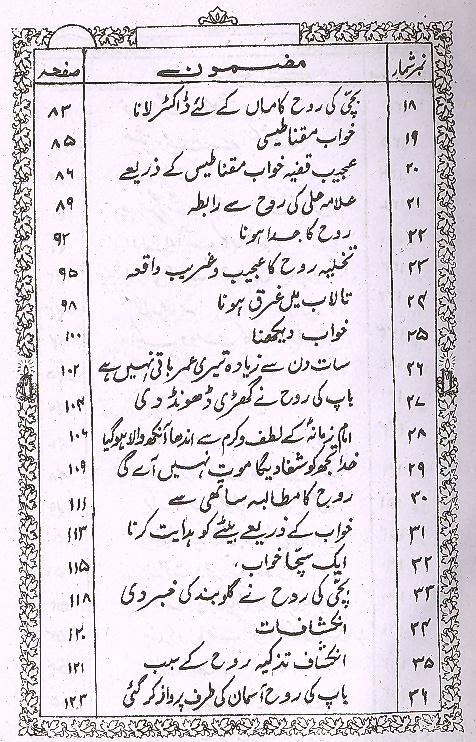 نمبر شمار مضمون صفحہ
۱۸ بچّی کی روح کا ماں کے لئے ڈاکٹر لانا ۸۳
۱۹ خواب مقناطیسی ۸۵
۲۰ عجیب قضیہ خواب مقناطیس کے ذریعے ۸۶
۲۱ علامہ علی کی روح سے رابطہ ۸۹
۲۲ روح کا جدا ہونا ۹۲
۲۳ تخلیہ روح کا عجیب و غریب واقعہ ۹۵
۲۴ تالاب میں غرق ہونا ۹۸
۲۵ خواب دیکھنا ۱۰۰
۲۶ سات دن سے زیادہ تیری عمر باقی نہیں ہے ۱۰۲
۲۷ باپ کی روح نے گھڑی ڈھونڈ دی ۱۰۴
۲۸ امام زمانہؑ کے لطف و کرم سے اندھا آنکھ والا ہو گیا ۱۰۶
۲۹ خدا تجھ کو شفا دیگا موت نہیں آے گی ۱۰۹
۳۰ روح کا مطالبہ ساتھی سے ۱۱۱
۳۱ خواب کے ذریعے بیٹے کو ہدایت کرنا ۱۱۳
۳۲ ایک سچّا خواب ۱۱۵
۳۳ بچّی کی روح نے گلوبند کی خبر دی ۱۱۸
۳۴ انکشافات ۱۲۰
۳۵ انکشاف تذکیہ روح کے سبب ۱۲۱
۳۶ باپ کی روح آسمان کی طرف پرواز کر گئی ۱۲۳